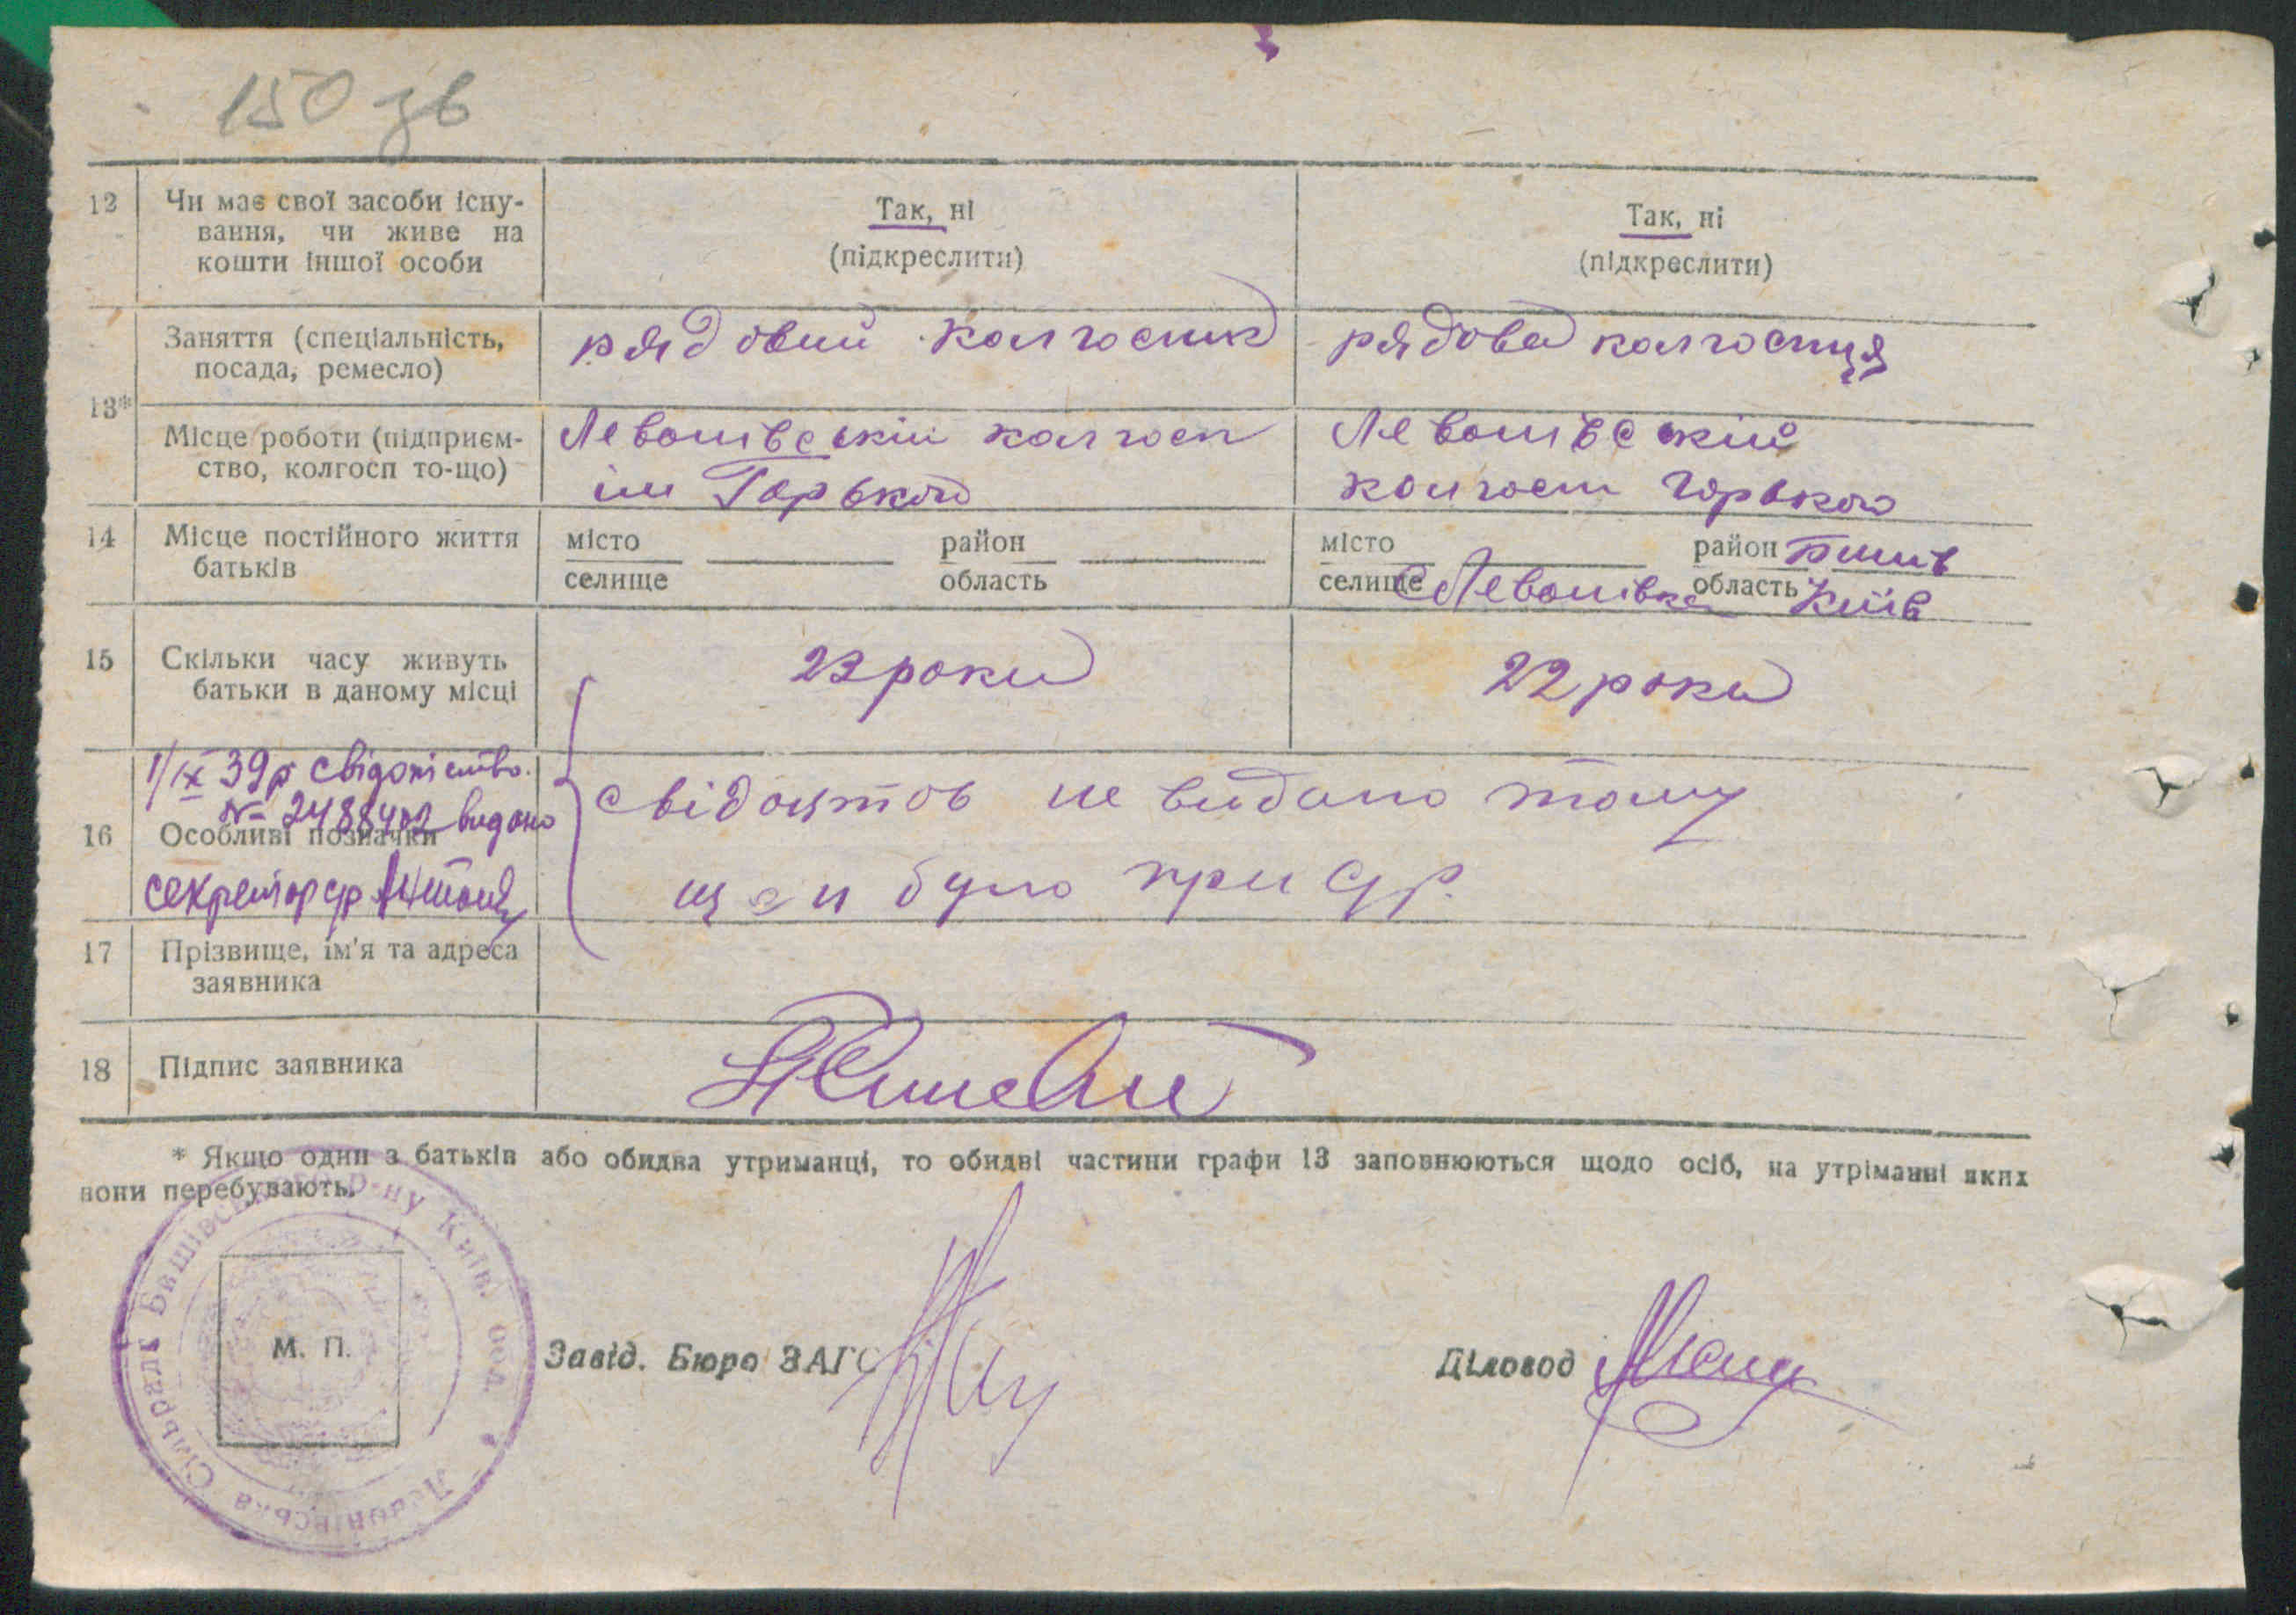 150 зв
12 Чи має свої засоби існу- Так, ні Так, ні
вання, чи живе на (підкреслити) (підкреслити)
кошти іншої особи
Заняття (спеціальність, рядовий колгосник рядова колгосниця
посада, ремесло)
13*
Місце роботи (підприєм- Левонівській колгосп Левонівській
ство, колгосп то-що) ім Горького колгосп Горького
14 Місце постійного життя місто район місто район
батьків селище область селище с Левонівка область Київ
15 Скільки часу живуть 23 роки 22 роки
батьки в даному місці
1/ІХ 39р свідоцтво свідоцтов не видано тому
№ 2488402 видано
16 Особливі позначки
секретар ср що н було при ср.
17 Прізвище, ім'я та адреса
заявника
18 Підпис заявника
* Якщо один з батьків або обидва утриманці, то обидві частини графи 13 заповнюються щодо осіб, на утріманні яких
вони перебувають.
Сільрада Бишівськ. р-ну Київ. обл.
М. П.
Завід. Бюро ЗАГС Діловод